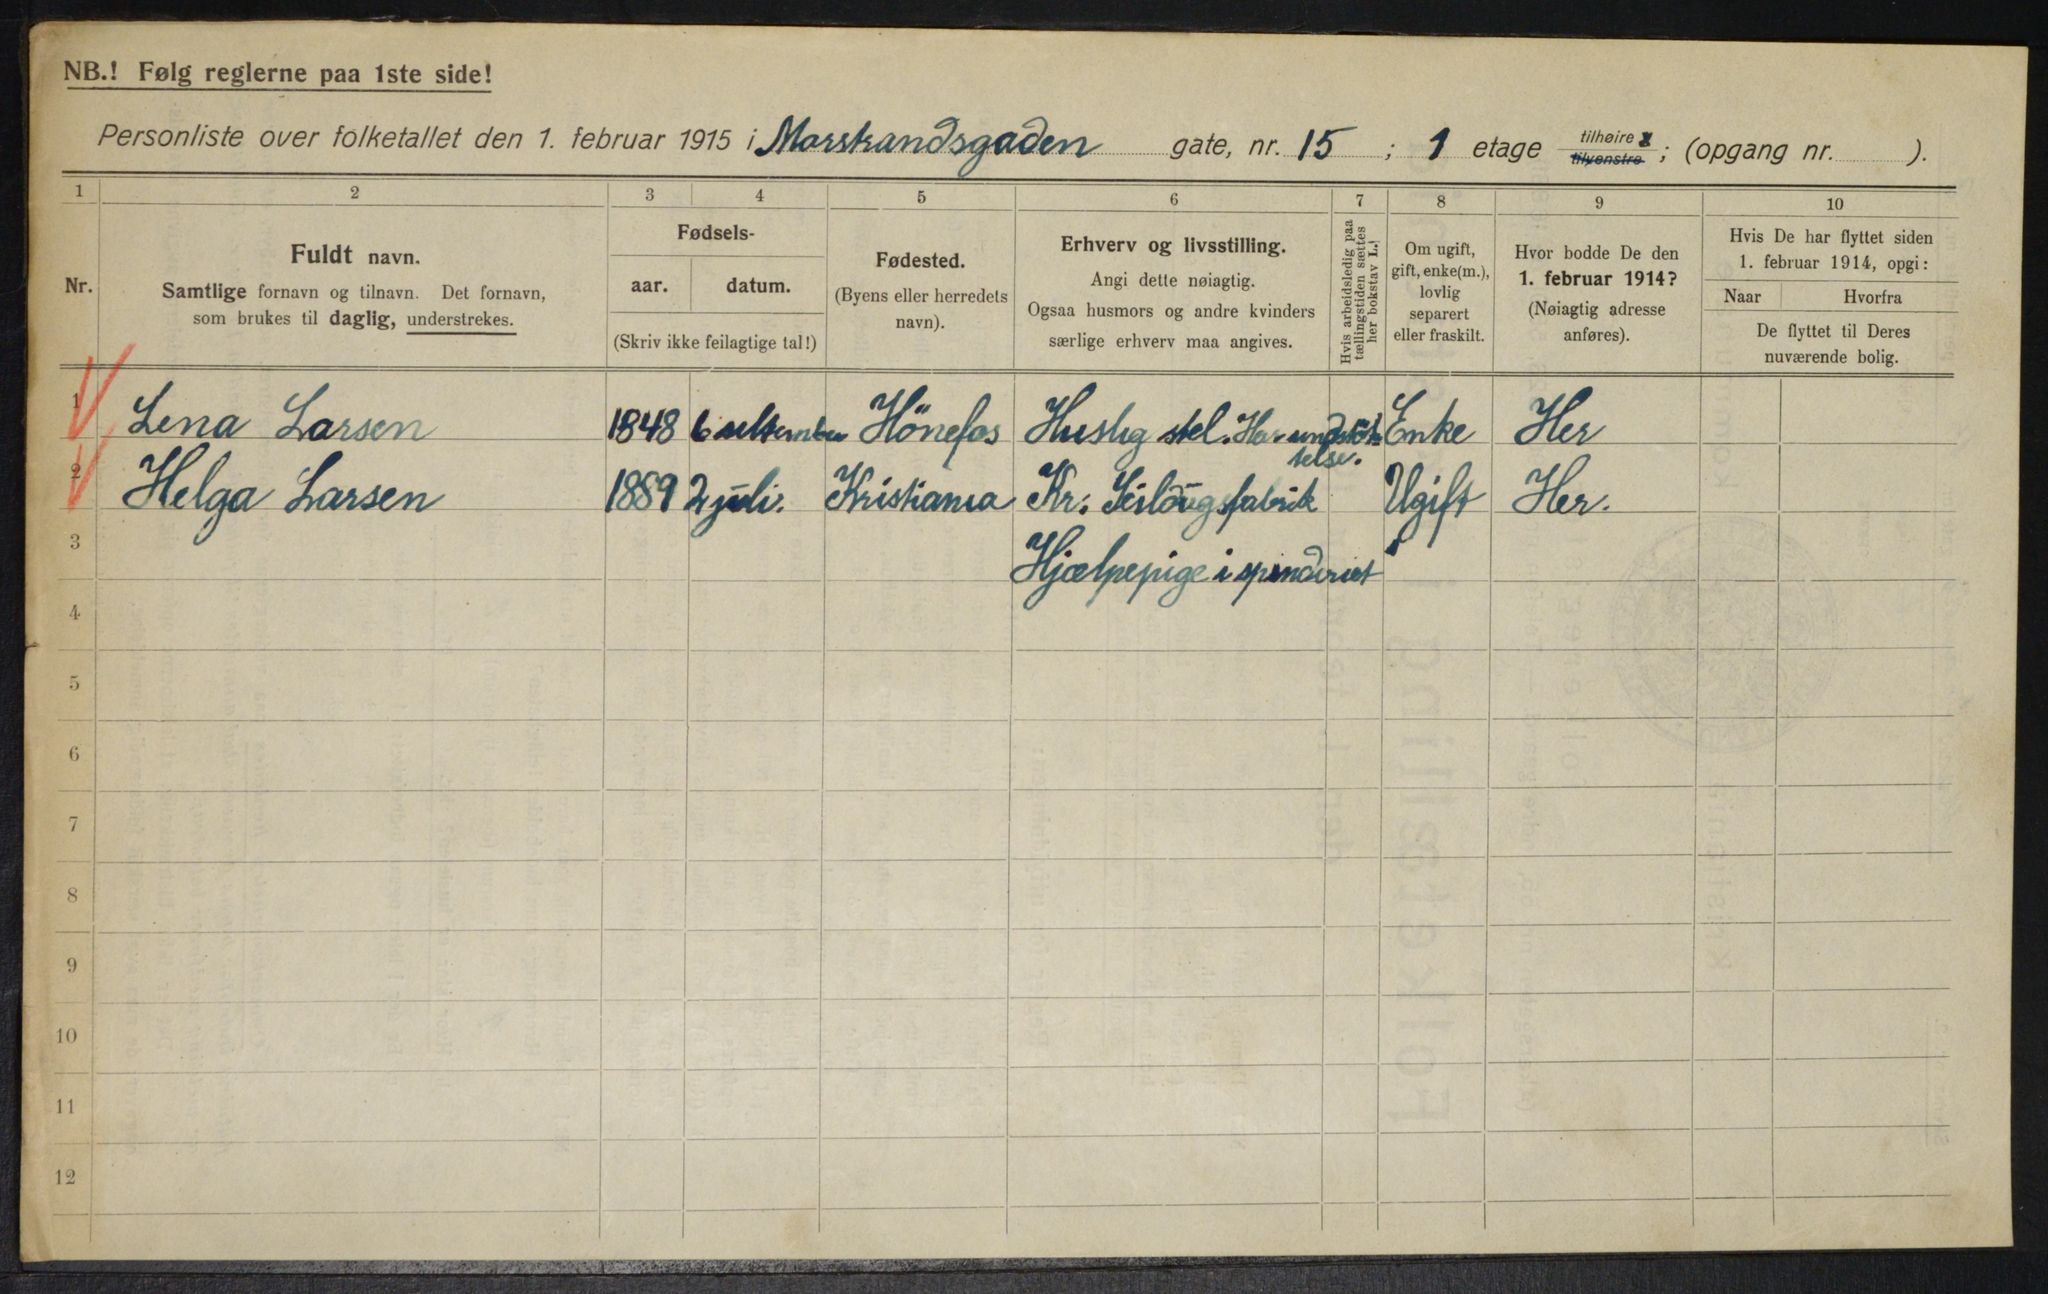 NB.! Følg reglerne paa 1ste side!
Personliste over folketallet den 1. februar 1915 i Marstrandsgaden gate, nr. 15 ; 1 etage tilhøire / tilvenstre ; (opgang nr. ).
1 2 3 4 5 6 7 8 9 10
Nr.
Fuldt navn.
Samtlige fornavn og tilnavn. Det fornavn,
som brukes til daglig, understrekes.
Fødsels-
aar. datum.
(Skriv ikke feilagtige tal!)
Fødested.
(Byens eller herredets
navn).
Erhverv og livsstilling.
Angi dette nøiagtig.
Ogsaa husmors og andre kvinders
særlige erhverv maa angives.
Hvis arbeidsledig paa
tællingstiden sættes
her bokstav L.!
Om ugift,
gift, enke(m.),
lovlig
separert
eller fraskilt.
Hvor bodde De den
1. februar 1914?
(Nøiagtig adresse
anføres).
Hvis De har flyttet siden
1. februar 1914, opgi:
Naar Hvorfra
De flyttet til Deres
nuværende bolig.
1 Lena Larsen 1848 6 Hönefos Huslig stel. Har understöt- Enke Her
telse.
2 Helga Larsen 1889 2 juli. Kristiania Kr. Seildugsfabrik Ugift Her.
3 Hjælpepige i spinderiet
4
5
6
7
8
9
10
11
12